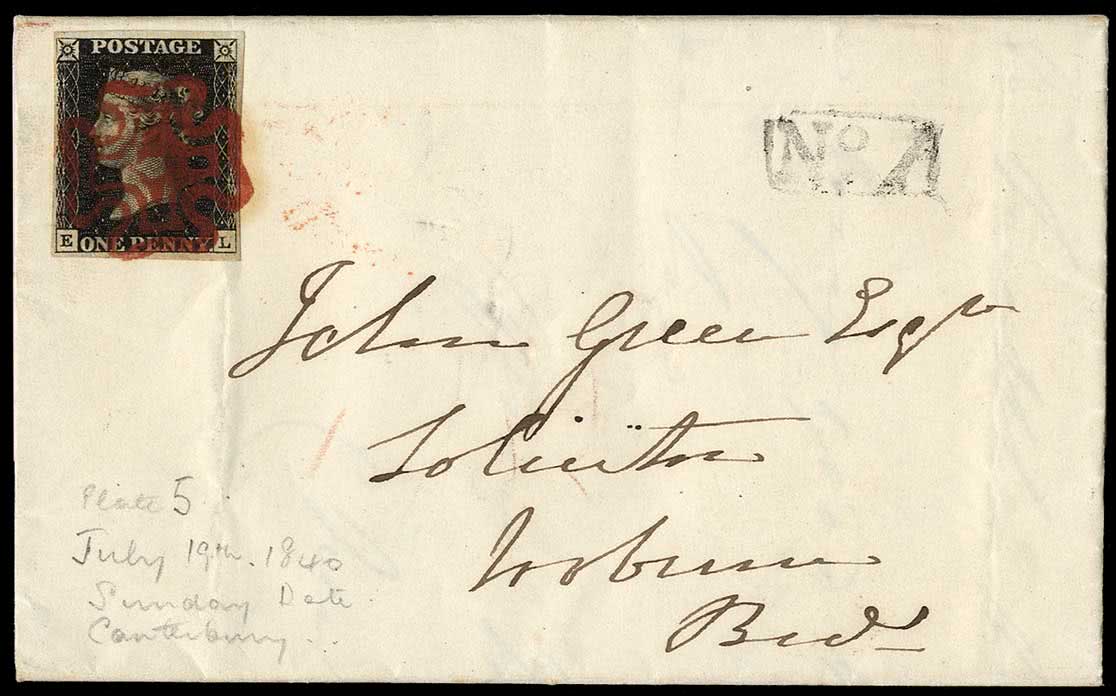 POSTAGE
E ONE PENNY L
No. 1
John Green Esqr
Solicitor
Woburn
Beds
Plate 5
July 19th. 1840
Sunday Date
Canterbury